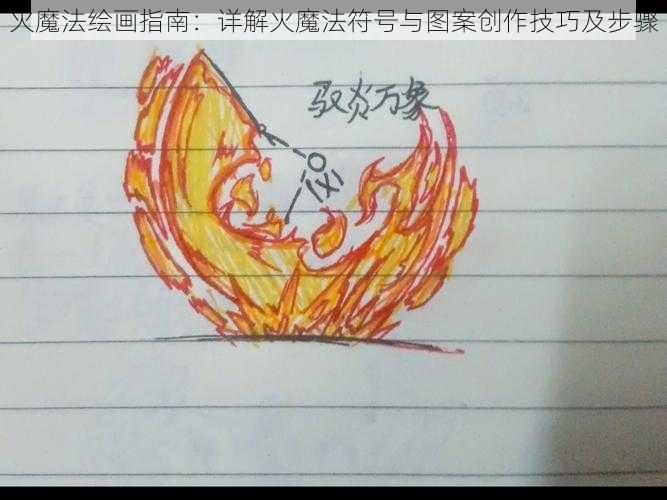 火魔法绘画指南：详解火魔法符号与图案创作技巧及步骤
驭炎万象